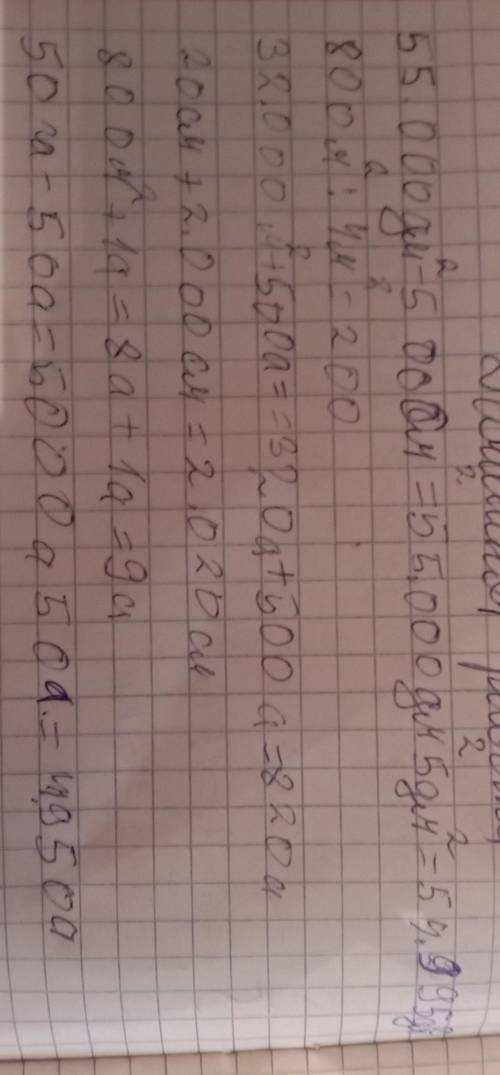 55.000дм²-5000м²=55.000дм²5дм²=54.995дм
800м²:4м²=200
32.000м²+500а==320а+500а=820а
20см+2.000см=2.020см
800м²+1а=8а+1а=9а
50га-50а=5000а50а.=4,950а